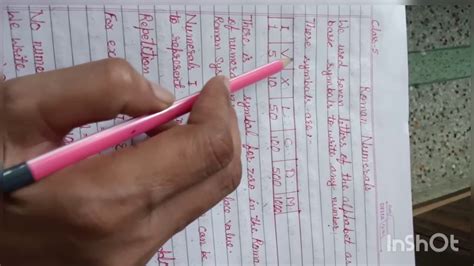 Class-5
Roman Numerals
We used seven letters of the alphabet as
base symbols to write any number.
These symbols are:
I V X L C D M
1 5 10 50 100 500 1000
There is symbol for zero in the Roma
of numera place value.
Roman Sys
Numerals I can be
to represent
Repetition
For ex
No nume
We write
InShOt